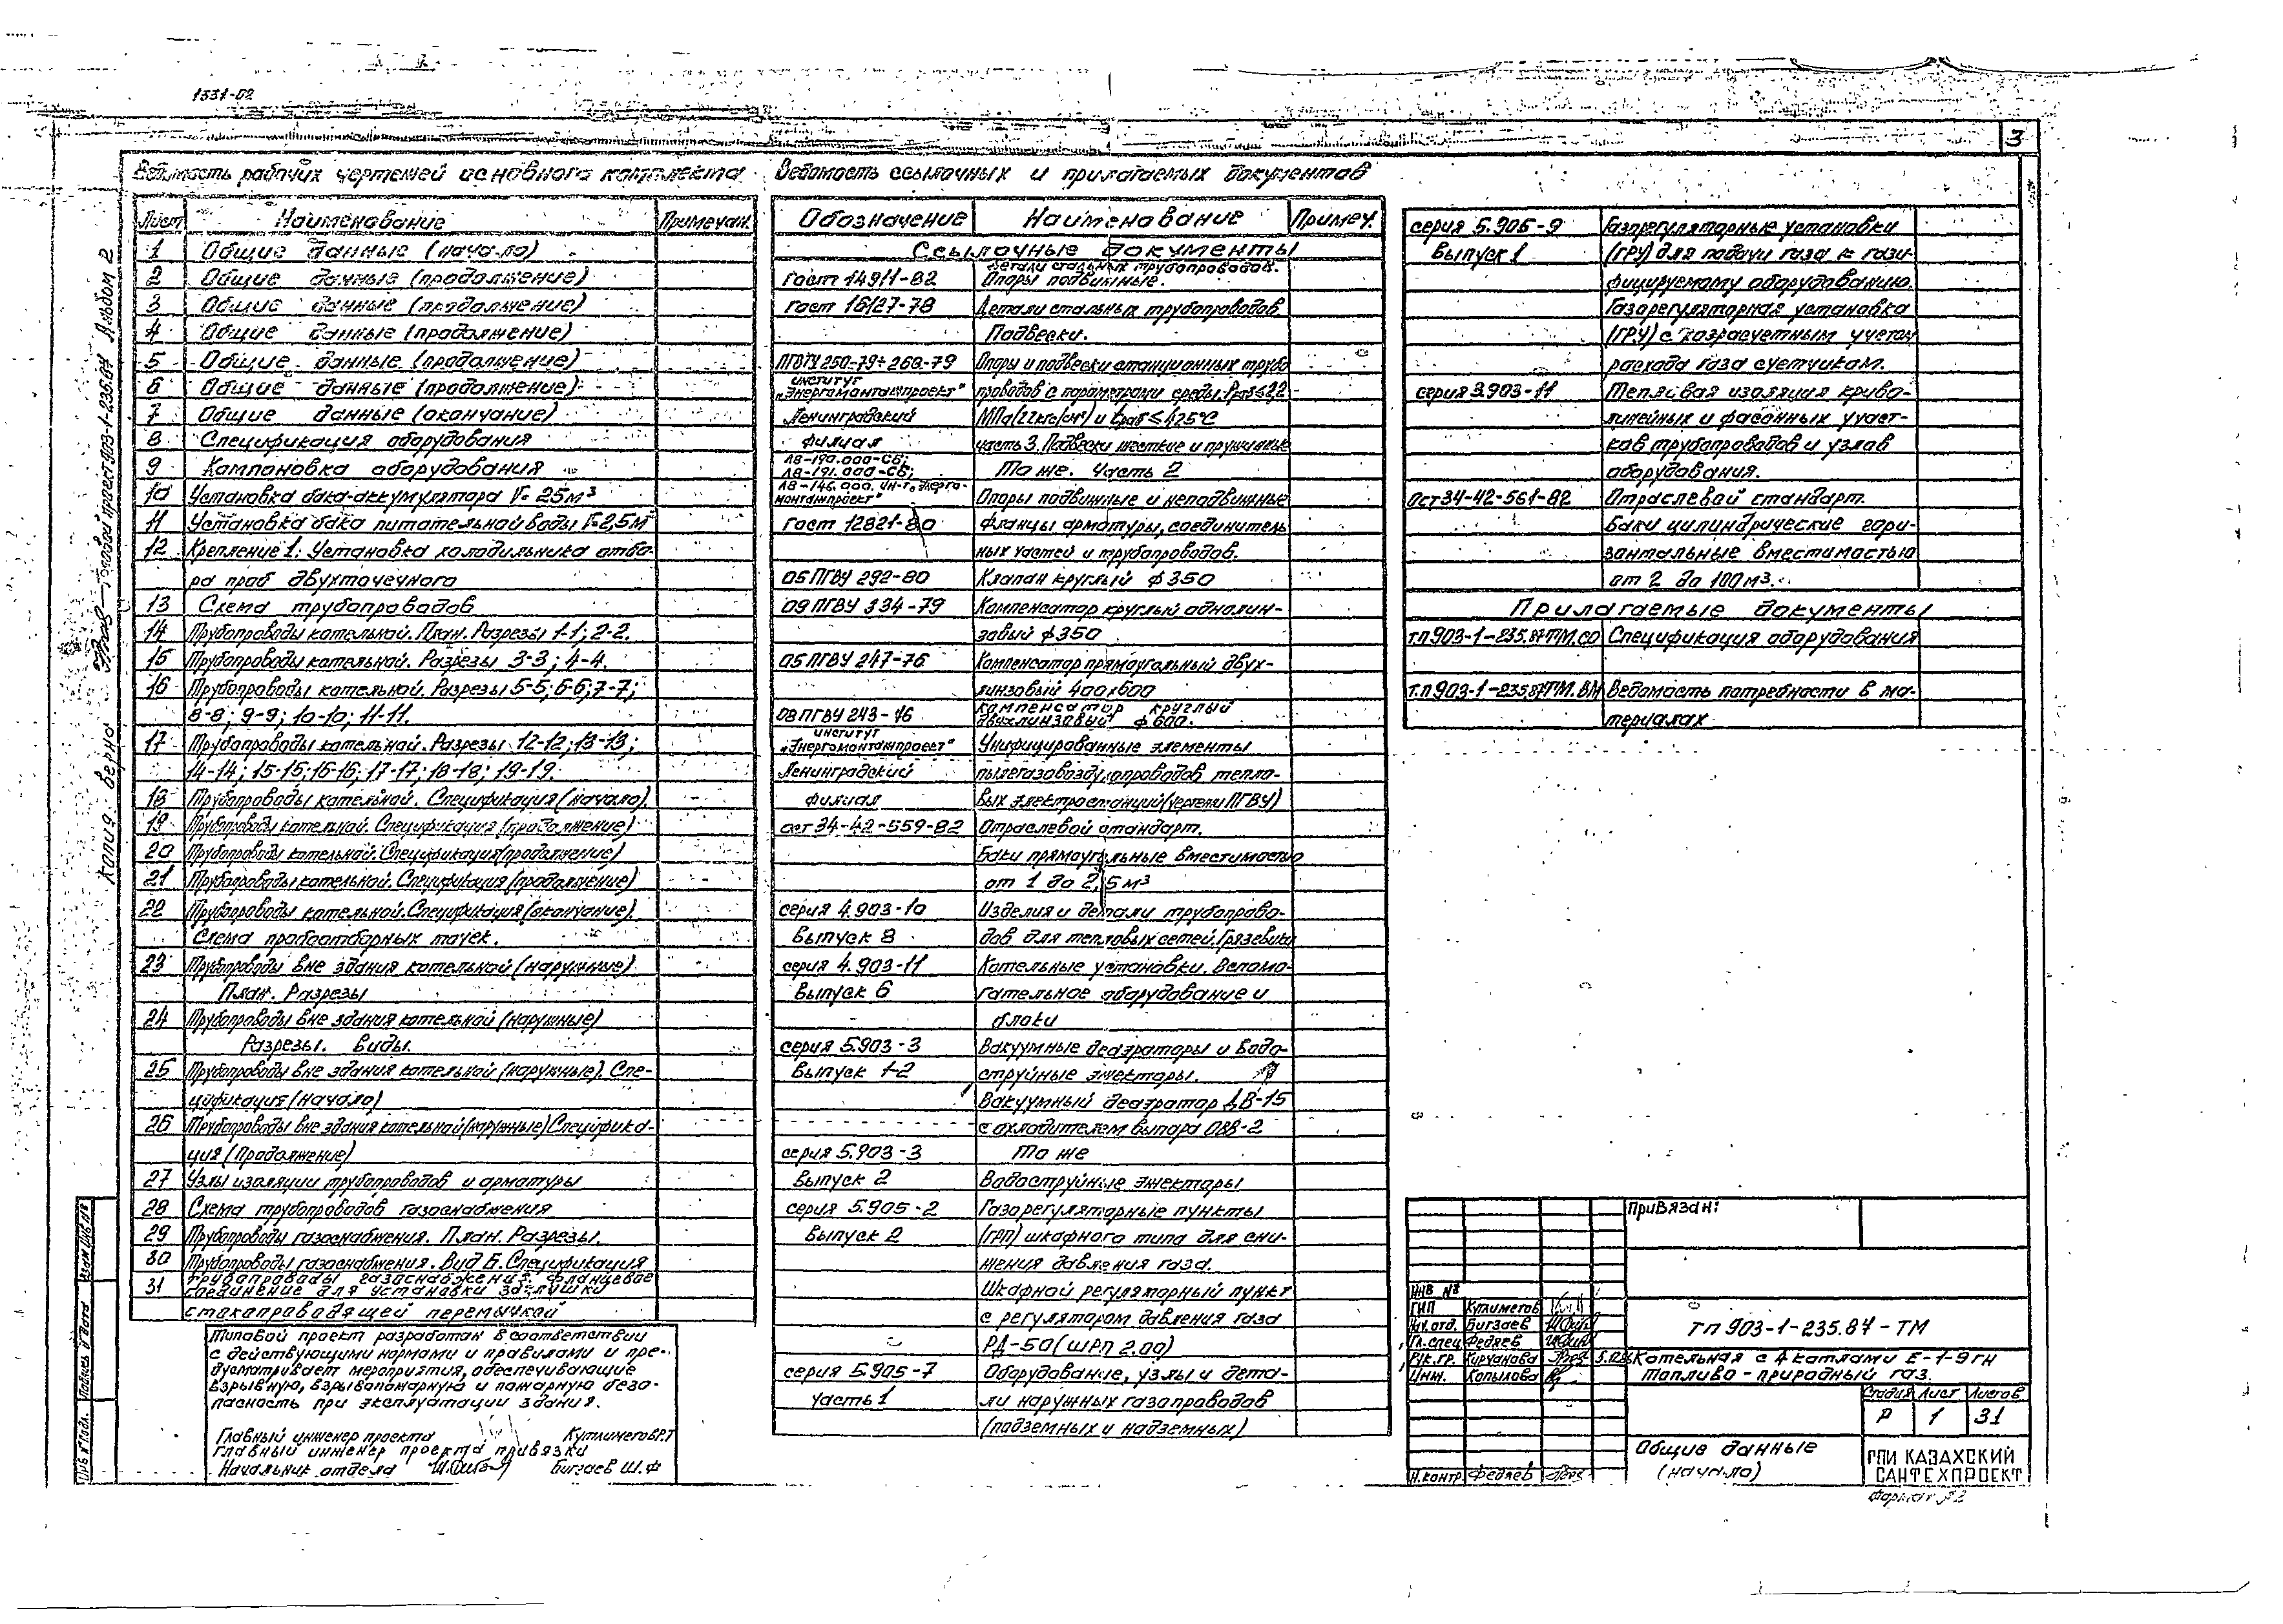 1331-02
3
Ведомость рабочих чертежей основного комплекта
Лист Наименование Примечан.
1 Общие данные (начало)
2 Общие данные (продолжение)
3 Общие данные (продолжение)
4 Общие данные (продолжение)
5 Общие данные (продолжение)
6 Общие данные (продолжение)
7 Общие данные (окончание)
8 Спецификация оборудования
9 Компановка оборудования
10 Установка бака-аккумулятора V=25м³
11 Установка бака питательной воды V=2,5м³
12 Крепление 1. Установка холодильника отбо-
ра проб двухточечного
13 Схема трубопроводов
14 Трубопроводы котельной. План. Разрезы 1-1; 2-2.
15 Трубопроводы котельной. Разрезы 3-3; 4-4.
16 Трубопроводы котельной. Разрезы 5-5; 6-6; 7-7;
8-8; 9-9; 10-10; 11-11.
17 Трубопроводы котельной. Разрезы 12-12; 13-13;
14-14; 15-15; 16-16; 17-17; 18-18; 19-19.
18 Трубопроводы котельной. Спецификация (начало)
19 Трубопроводы котельной. Спецификация (продолжение)
20 Трубопроводы котельной. Спецификация (продолжение)
21 Трубопроводы котельной. Спецификация (продолжение)
22 Трубопроводы котельной. Спецификация (окончание).
Схема пробоотборных точек.
23 Трубопроводы вне здания котельной (наружные)
План. Разрезы
24 Трубопроводы вне здания котельной (наружные)
Разрезы. Виды.
25 Трубопроводы вне здания котельной (наружные). Спе-
цификация (начало)
26 Трубопроводы вне здания котельной (наружные) Специфика-
ция (продолжение)
27 Узлы изоляции трубопроводов и арматуры
28 Схема трубопроводов газоснабжения
29 Трубопроводы газоснабжения. План. Разрезы.
30 Трубопроводы газоснабжения. Вид Б. Спецификация
31 Трубопроводы газоснабжения. Фланцевое
соединение для установки заглушки
с токопроводящей перемычкой
Типовой проект разработан в соответствии
с действующими нормами и правилами и пре-
дусматривает мероприятия, обеспечивающие
взрывную, взрывопожарную и пожарную безо-
пасность при эксплуатации здания.
Главный инженер проекта Кутлиметов Р.Т
Главный инженер проекта привязки
Начальник отдела Бигзаев Ш.Ф
Ведомость ссылочных и прилагаемых документов
Обозначение Наименование Примеч.
Ссылочные документы
Гост 14911-82 Детали стальных трубопроводов.
Опоры подвижные.
Гост 16127-78 Детали стальных трубопроводов
Подвески.
ПГВТУ 250-79÷268-79 Опоры и подвески станционных трубо
институт
„Энергомонтажпроект" проводов с параметрами среды Pраб≤2,2
Ленинградский МПа(22кгс/см²) и tраб≤425°С
филиал часть 3. Подвески жесткие и пружинные
Л8-190.000-СБ;
Л8-191.000-СБ; То же. Часть 2
Л8-146.000. Ин-т „Энерго-
монтажпроект" Опоры подвижные и неподвижные
Гост 12821-80 Фланцы арматуры, соединитель
ных частей и трубопроводов.
05ПГВУ 292-80 Клапан круглый ф350
09ПГВУ 334-79 Компенсатор круглый однолин-
зовый ф350
05ПГВУ 247-76 Компенсатор прямоугольный двух-
линзовый 400х600
08ПГВУ 243-76 Компенсатор круглый
двухлинзовый ф600.
институт
„Энергомонтажпроект" Унифицированные элементы
Ленинградский пылегазовоздухопроводов тепло-
филиал вых электростанций (чертежи ПГВУ)
ост 34-42-559-82 Отраслевой стандарт.
Баки прямоугольные вместимостью
от 1 до 2,5 м³
серия 4.903-10 Изделия и детали трубопрово-
Выпуск 8 дов для тепловых сетей. Грязевики
серия 4.903-11 Котельные установки. Вспомо-
Выпуск 6 гательное оборудование и
блоки
серия 5.903-3 Вакуумные деаэраторы и водо-
Выпуск 1-2 струйные эжекторы.
Вакуумный деаэратор ДВ-15
с охладителем выпара ОВВ-2
серия 5.903-3 То же
Выпуск 2 Водоструйные эжекторы
серия 5.905-2 Газорегуляторные пункты
Выпуск 2 (ГРП) шкафного типа для сни-
жения давления газа.
Шкафной регуляторный пункт
с регулятором давления газа
РД-50 (ШРП 2.00)
серия 5.905-7 Оборудование, узлы и дета-
часть 1 ли наружных газопроводов
(подземных и надземных)
серия 5.905-9 Газорегуляторные установки
Выпуск 1 (ГРУ) для подачи газа к гази-
фицируемому оборудованию.
Газорегуляторная установка
(ГРУ) с хозрасчетным учетом
расхода газа счетчиком.
серия 3.903-11 Тепловая изоляция криво-
линейных и фасонных участ-
ков трубопроводов и узлов
оборудования.
Ост 34-42-561-82 Отраслевой стандарт.
Баки цилиндрические гори-
зонтальные вместимостью
от 2 до 100 м³.
Прилагаемые документы
т.п 903-1-235.87ТМ.СО Спецификация оборудования
т.п 903-1-235.87ТМ.ВМ Ведомость потребности в ма-
териалах
Привязан:
Инв №
ГИП Кутлиметов
Нач.отд. Бигзаев
Гл.спец Федяев
Рук.гр. Кирчанова
Инж. Копылова
Н.контр Федяев
ТП 903-1-235.87-ТМ
Котельная с 4 котлами Е-1-9ГН
Топливо - природный газ.
Стадия Лист Листов
Р 1 31
Общие данные
(начало)
ГПИ КАЗАХСКИЙ
САНТЕХПРОЕКТ
Формат А2
Копия верна Типовой проект 903-1-235.87 Альбом 2
Инв № подл. Подпись и дата Взам инв №